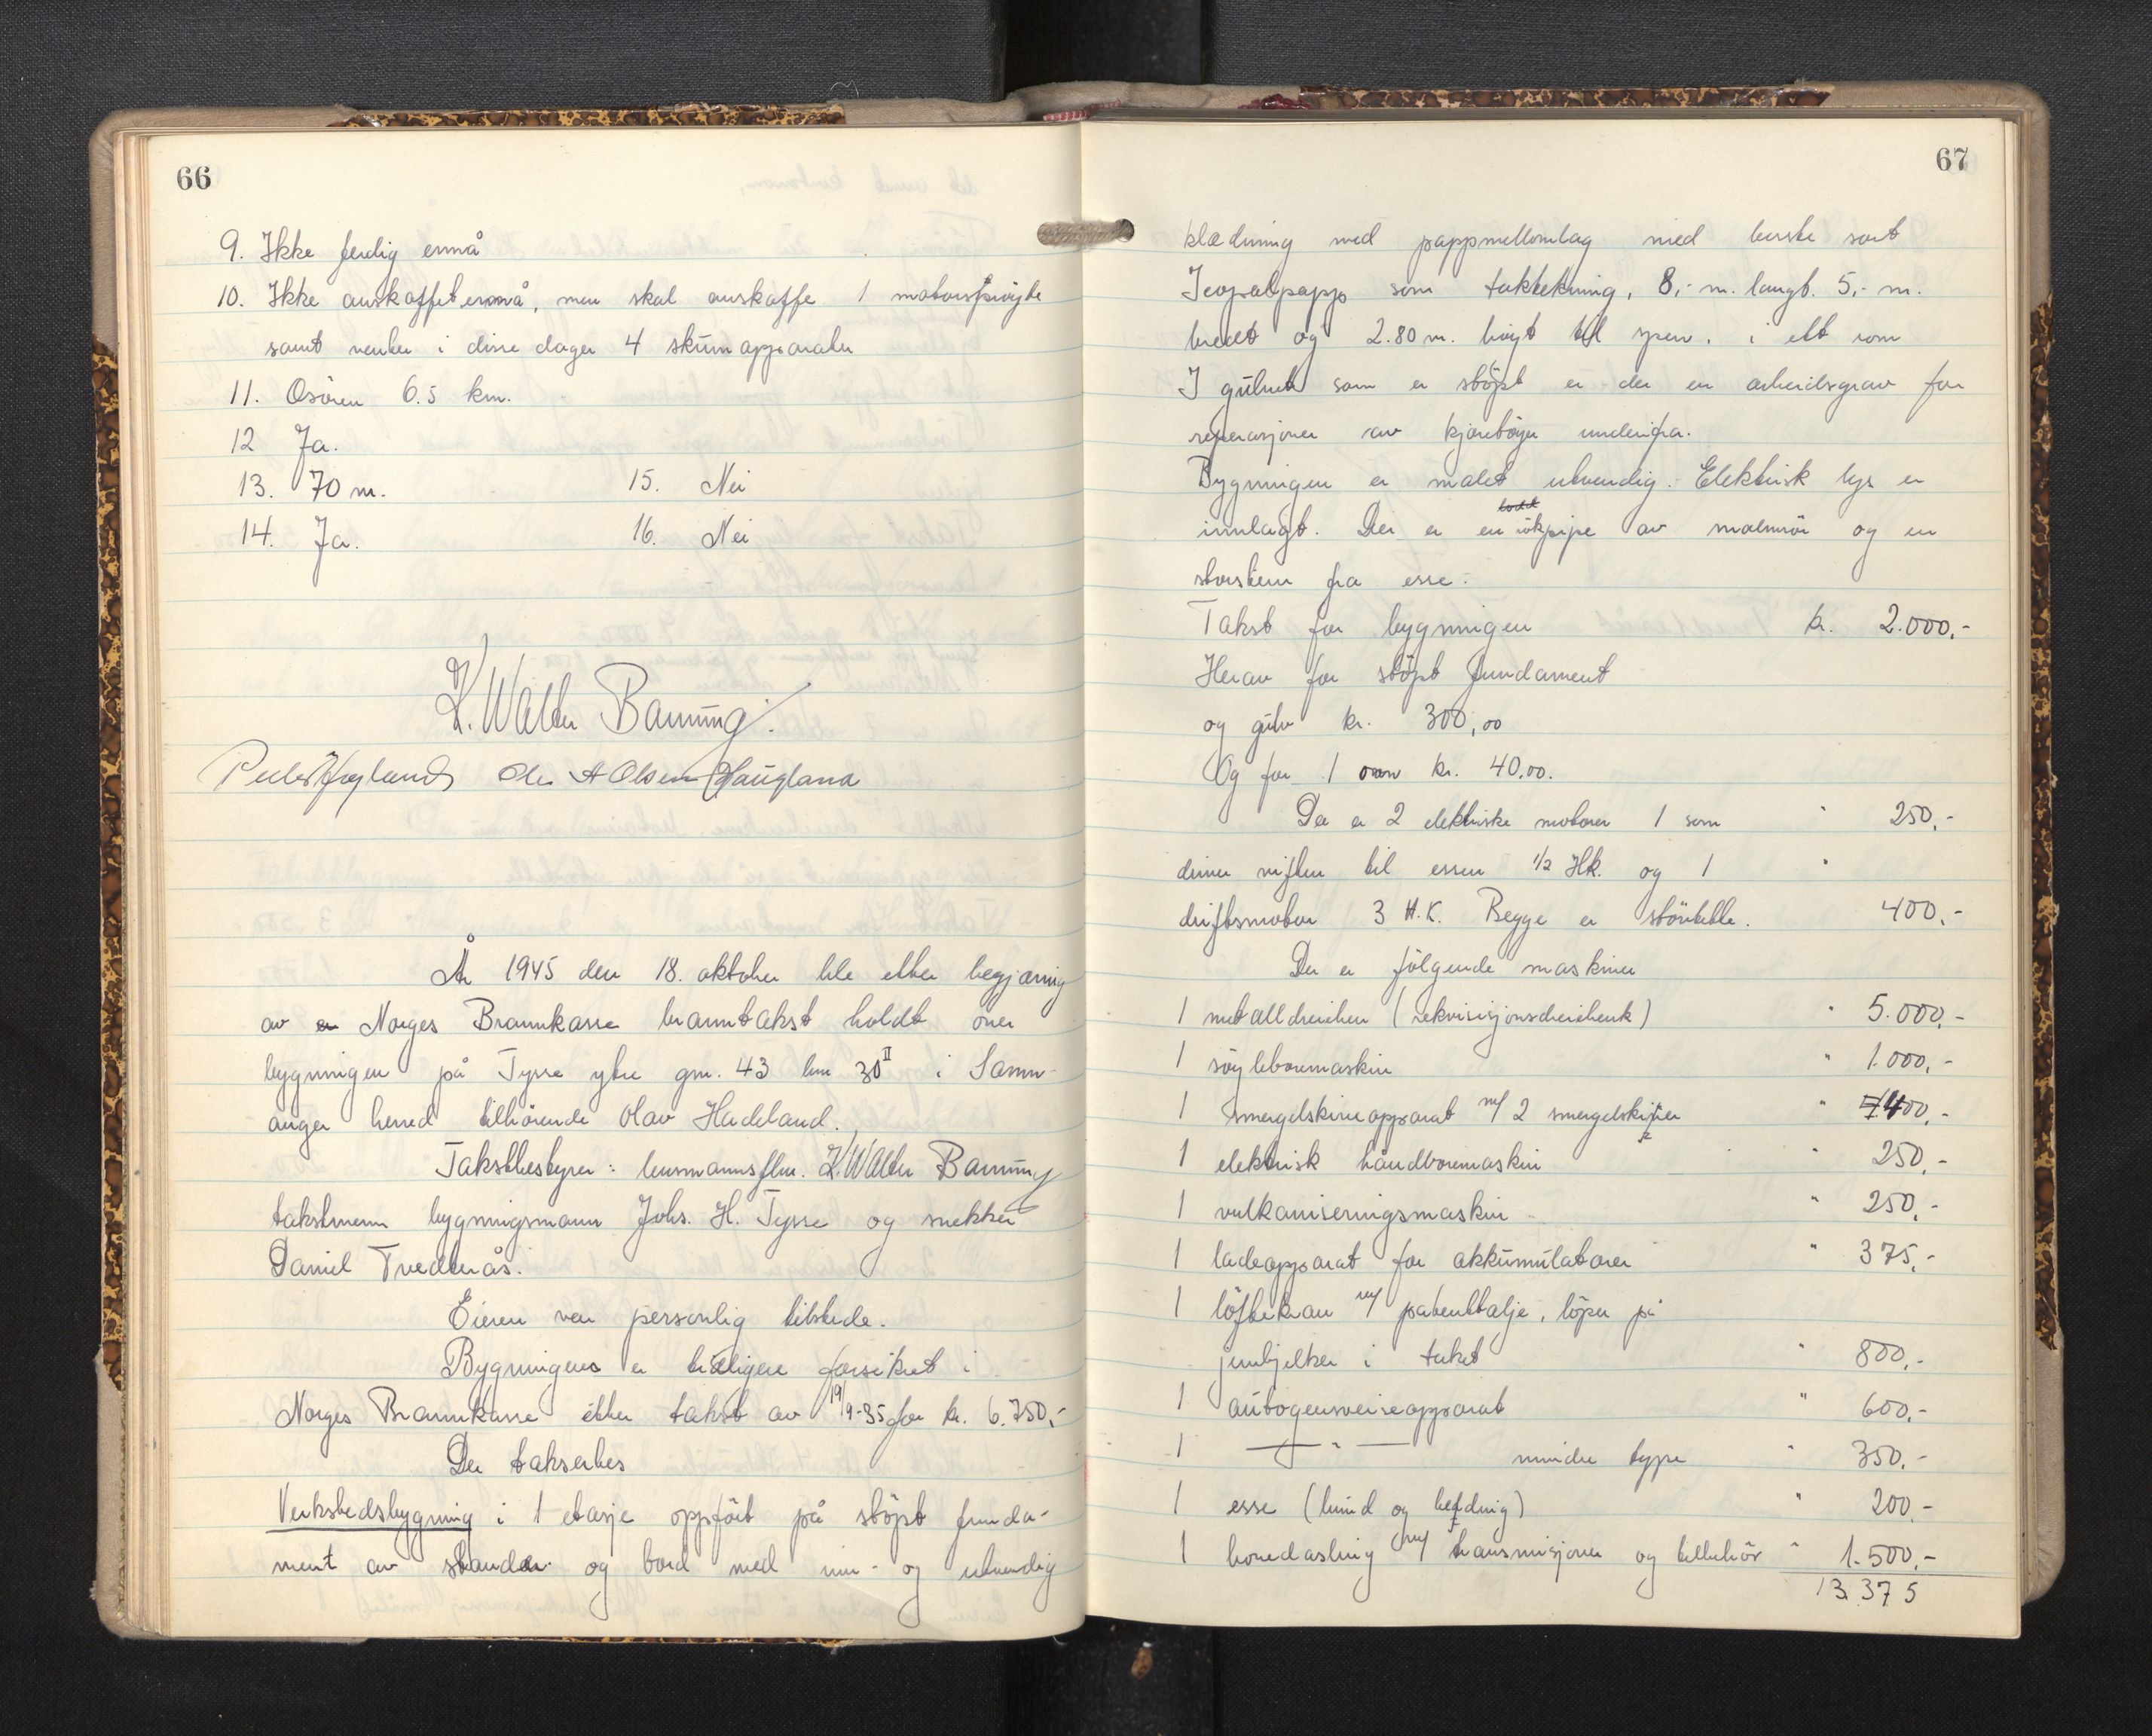 66
9. Ikke ferdig ennå
10. Ikke anskaffet ennå, men skal anskaffe 1 motorsprøyte
samt venter i disse dager 4 skumapparater
11. Osøren 6.5 km.
12 Ja.
13. 70 m. 15. Nei
14. Ja. 16. Nei
K. Walter Banning.
Peder Høyland Ole A Olsen Haugland
År 1945 den 18. oktober ble etter begjæring
av Norges Brannkasse branntakst holdt over
bygningen på Tysse ytre gnr. 43 bnr 30 II i Samn-
anger herred tilhørende Olav Hadeland.
Takstbestyrer: lensmannsflm. K. Walter Banning
takstmenn bygningsmann Johs. H. Tysse og snekker
Daniel Tvedterås.
Eieren var personlig tilstede.
Bygningene er tidligere forsikret i
Norges Brannkasse etter takst av 19/9-35 for kr. 6.750,-
Der taksertes
Verkstedsbygning i 1 etasje oppført på støpt funda-
ment av stander og bord med inn- og utvendig
67
klædning med pappmellomlag med beste sort
Icopalpapp som taktekning, 8,- m. langt. 5,- m.
bredt og 2.80 m. høgt til sperr. i ett rom
I gulvet som er støpt er der en arbeidsgrav for
reperasjoner av kjøretøyer underifra.
Bygningen er malet utvendig. Elektrisk lys er
innlagt. Der er en rökpipe av malmrör og en
skorstein fra esse.
Takst for bygningen kr. 2.000,-
Herav for støpt fundament
og gulv kr. 300,00
Og for 1 ovn kr. 40.00.
Der er 2 elektriske motorer 1 som " 250.-
driver viften til essen 1/2 Hk. og 1 "
driftsmotor 3 H.K. Begge er støvtette. 400.-
Der er følgende maskiner
1 metalldreiben (rekvisisjonsdreibenk) " 5.000,-
1 søyleboremaskin " 1.000,-
1 smergelskiveapparat m/ 2 smergelskiver " 400,-
1 elektrisk håndboremaskin " 250,-
1 vulkaniseringsmaskin " 250,-
1 ladeapparat for akkumulatorer " 375,-
1 løftekran m/ patenttalje, løper på
jernbjelker i taket " 800,-
1 autogensveiseapparat " 600,-
1 — " — mindre type " 350.-
1 esse " 200.-
1 hovedasling m/ transmisjoner og tilbehør " 1.500,-
13.375